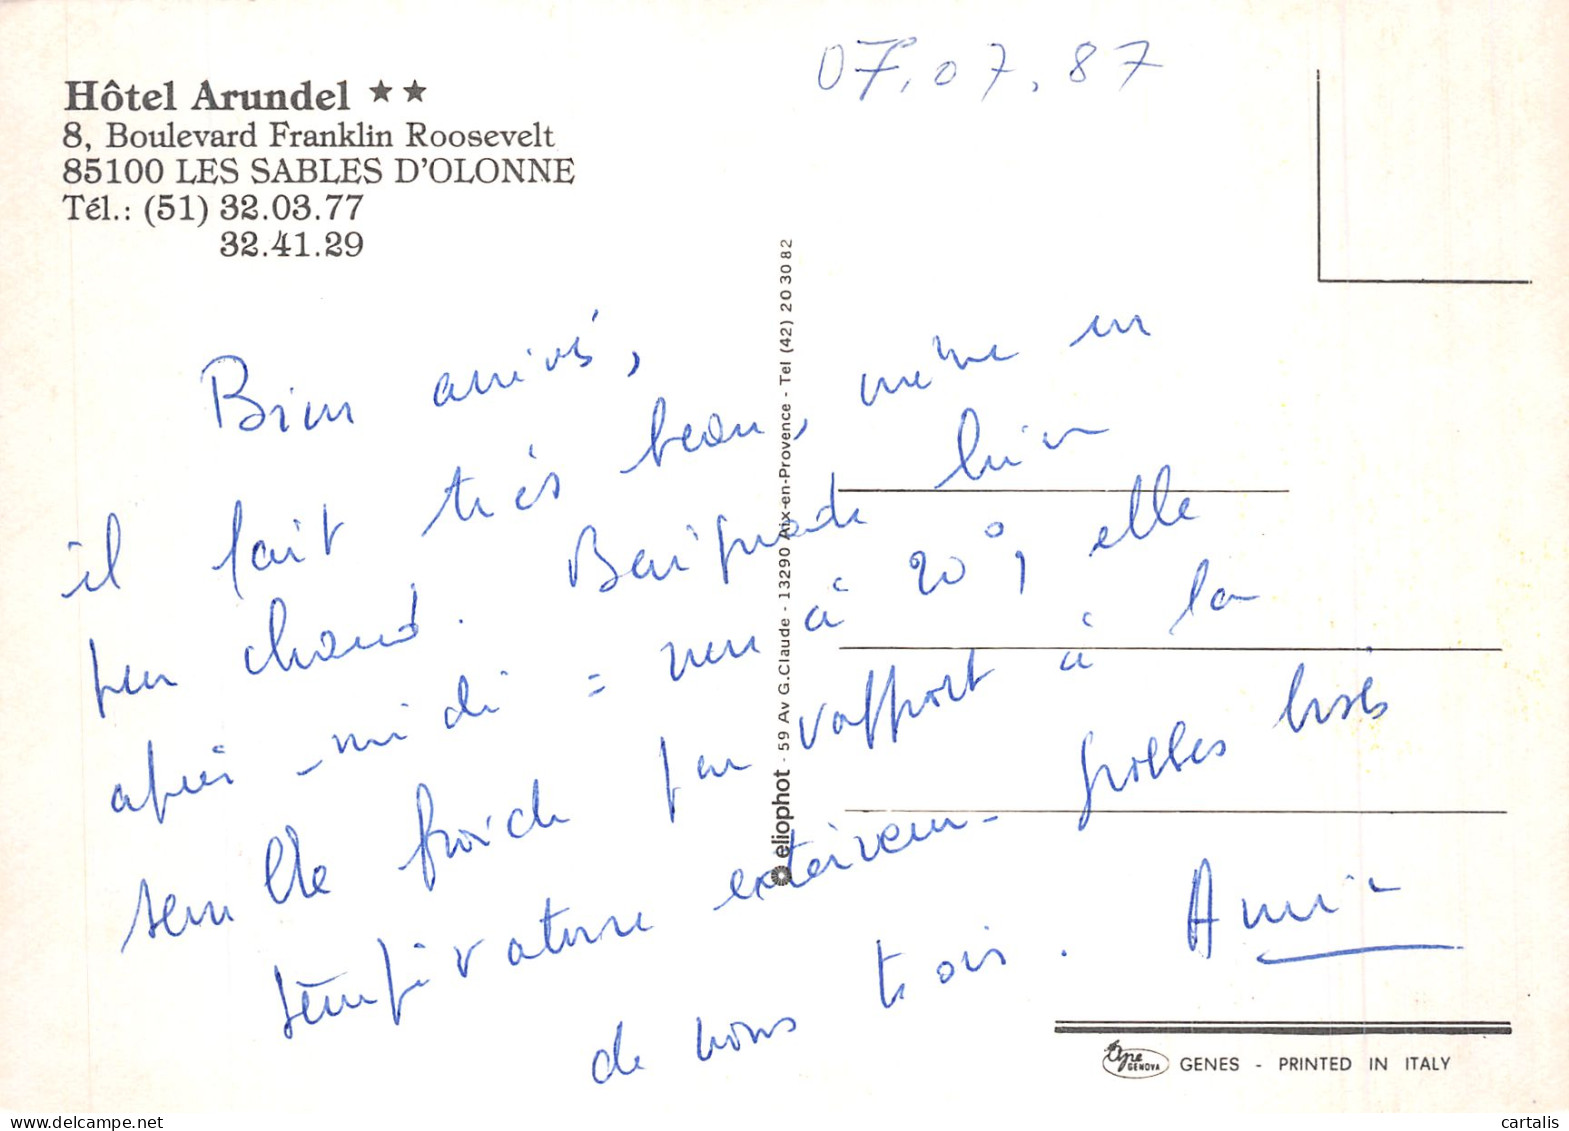 Hôtel Arundel ★★
8, Boulevard Franklin Roosevelt
85100 LES SABLES D'OLONNE
Tél.: (51) 32.03.77
32.41.29
07.07.87
Bien arrivés,
il fait très beau, même un
peu chaud. Baignade hier
après-midi = eau à 20°, elle
semble froide par rapport à la
température extérieure - grosses bises
de nous trois. Annie
eliophot - 59 Av G.Claude - 13290 Aix-en-Provence - Tel (42) 20 30 82
Ape GENOVA GENES - PRINTED IN ITALY
cartalis